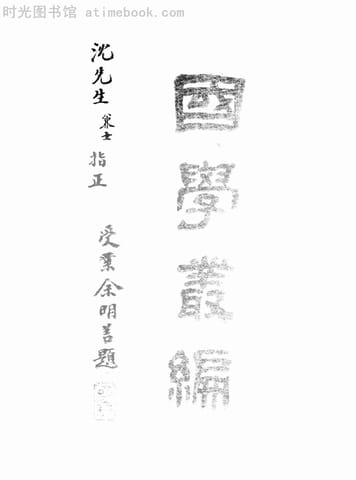 时光图书馆 atimebook.com
國學叢編
沈先生兼士指正
受業余明善題